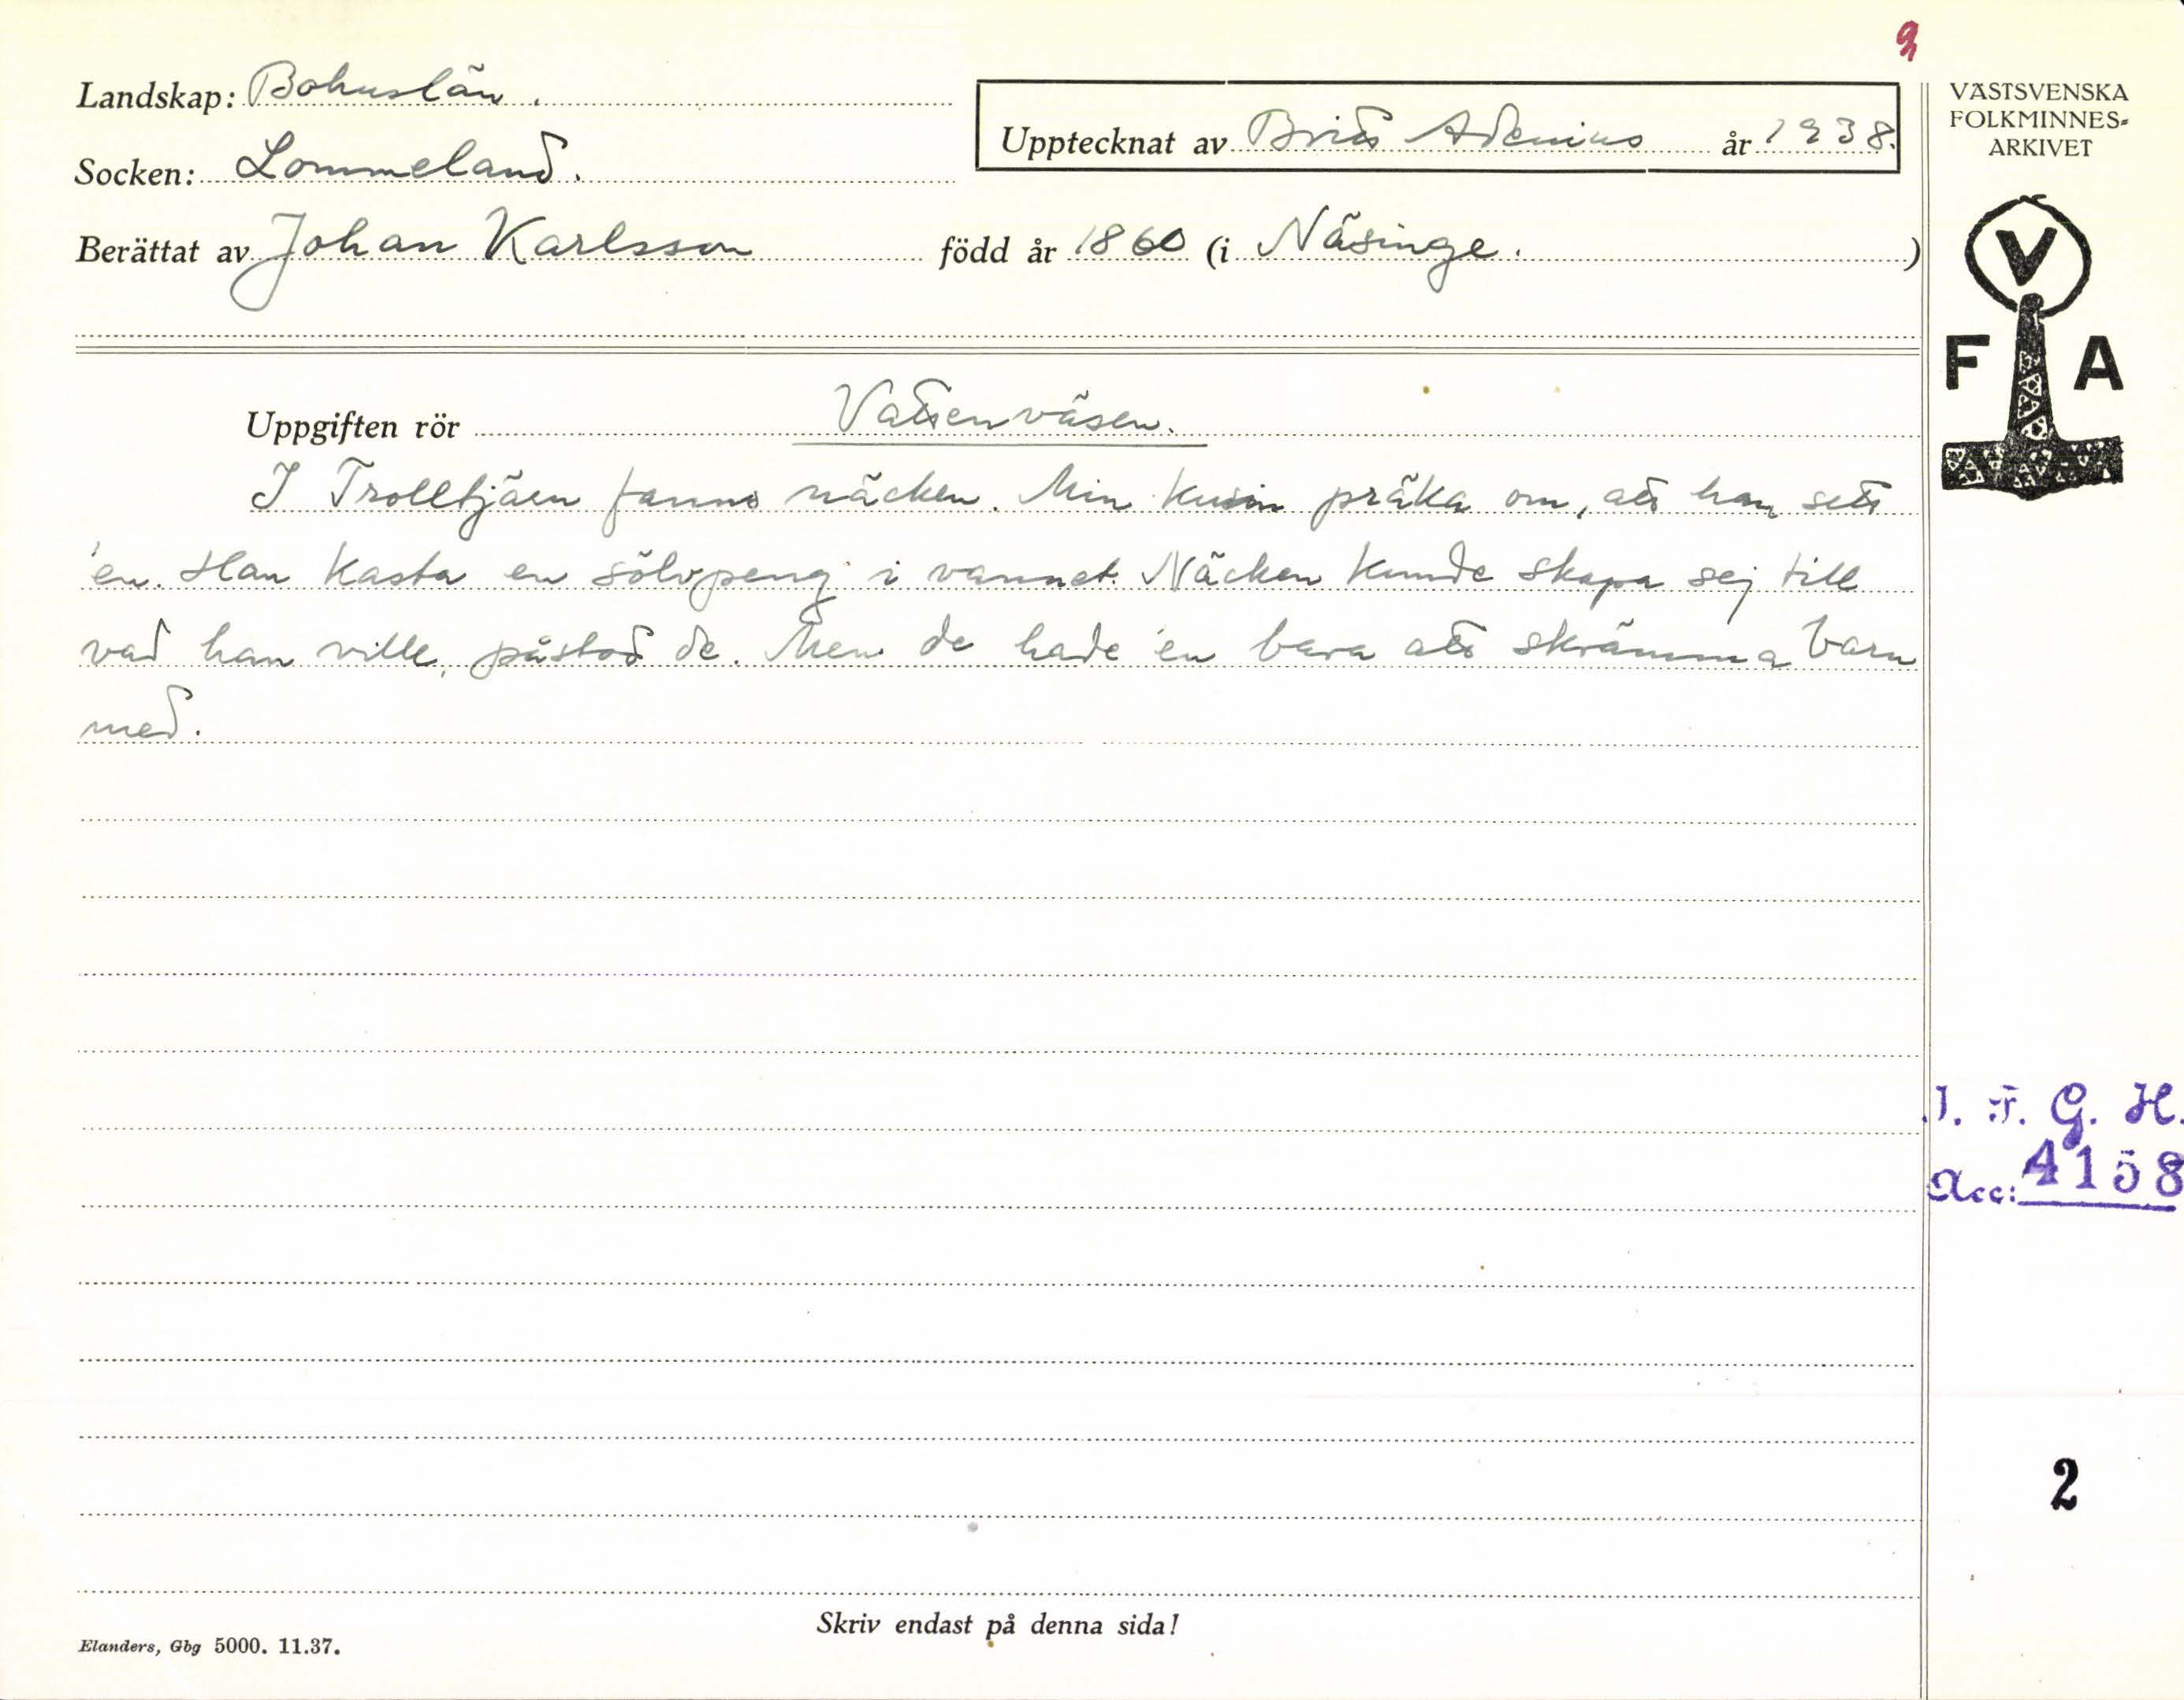 9
Landskap: Bohuslän.
Upptecknat av Britt Adenius år 1938.
Socken: Lommeland.
Berättat av Johan Karlsson född år 1860 (i Näsinge. )
VÄSTSVENSKA
FOLKMINNES-
ARKIVET
V
F A
Uppgiften rör Vattenväsen.
I Trolltjärn fanns näcken. Min kusin präka om, att han sett
'en. Han kasta en sölvpeng i vannet. Näcken kunde skapa sej till
vad han ville, påstod de. Men de hade 'en bara att skrämma barn
med.
I. F. G. H.
Acc: 4158
2
Skriv endast på denna sida!
Elanders, Gbg 5000. 11.37.